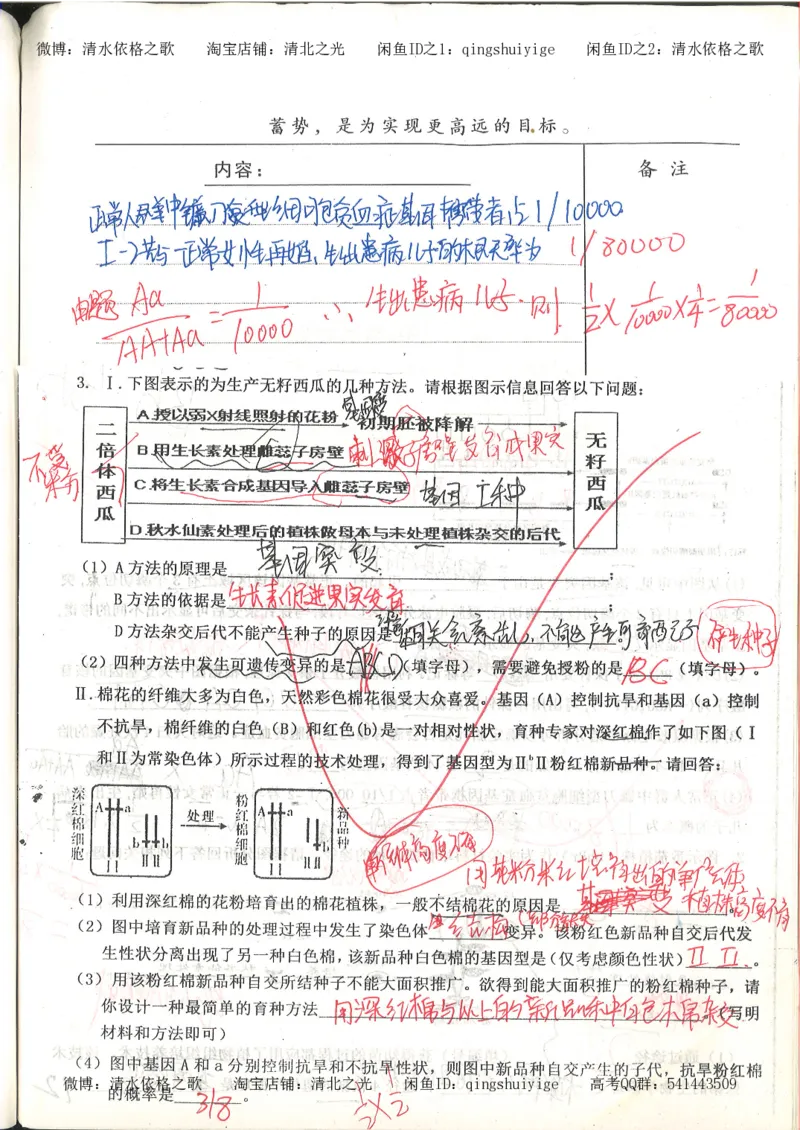 微博：清水依格之歌 淘宝店铺：清北之光 闲鱼ID之1：qingshuiyige 闲鱼ID之2：清水依格之歌
蓄势，是为实现更高远的目标。
内容： 备注
正常人群中镰刀型细胞贫血症基因携带者占1/10000
I-2若与一正常女性再婚，生出患病儿子的概率为 1/80000
由题 Aa/(AA+Aa) = 1/10000 ∴ 生出患病儿子. 则 1/2×1/10000×1/4=1/80000
3. Ⅰ.下图表示的为生产无籽西瓜的几种方法。请根据图示信息回答以下问题：
二倍体西瓜
A.授以弱X射线照射的花粉 初期胚被降解
B.用生长素处理雌蕊子房壁 刺激子房壁发育成果实
C.将生长素合成基因导入雌蕊子房壁 基因工程
D.秋水仙素处理后的植株做母本与未处理植株杂交的后代
无籽西瓜
（1）A方法的原理是 基因突变 ；
B方法的依据是 生长素促进果实发育
D方法杂交后代不能产生种子的原因是
（2）四种方法中发生可遗传变异的是 ACD （填字母），需要避免授粉的是 BC （填字母）。
Ⅱ.棉花的纤维大多为白色，天然彩色棉花很受大众喜爱。基因（A）控制抗旱和基因（a）控制
不抗旱，棉纤维的白色（B）和红色(b)是一对相对性状，育种专家对深红棉作了如下图（Ⅰ
和Ⅱ为常染色体）所示过程的技术处理，得到了基因型为ⅡᵇⅡ粉红棉新品种。请回答：
深红棉细胞 A a b b Ⅱ Ⅱ 处理 粉红棉细胞 A a b Ⅱ Ⅱ 新品种
单倍体高度不育
（1）利用深红棉的花粉培育出的棉花植株，一般不结棉花的原因是 植株高度不育
（2）图中培育新品种的处理过程中发生了染色体 结构 变异。该粉红色新品种自交后代发
生性状分离出现了另一种白色棉，该新品种白色棉的基因型是(仅考虑颜色性状) Ⅱ Ⅱ 。
（3）用该粉红棉新品种自交所结种子不能大面积推广。欲得到能大面积推广的粉红棉种子，请
你设计一种最简单的育种方法 用深红棉与以上的新品种中白色棉杂交 （写明
材料和方法即可）
（4）图中基因A和a分别控制抗旱和不抗旱性状，则图中新品种自交产生的子代，抗旱粉红棉
微博：清水依格之歌 淘宝店铺：清北之光 闲鱼ID：qingshuiyige 高考QQ群：541443509
的概率是 3/8 。